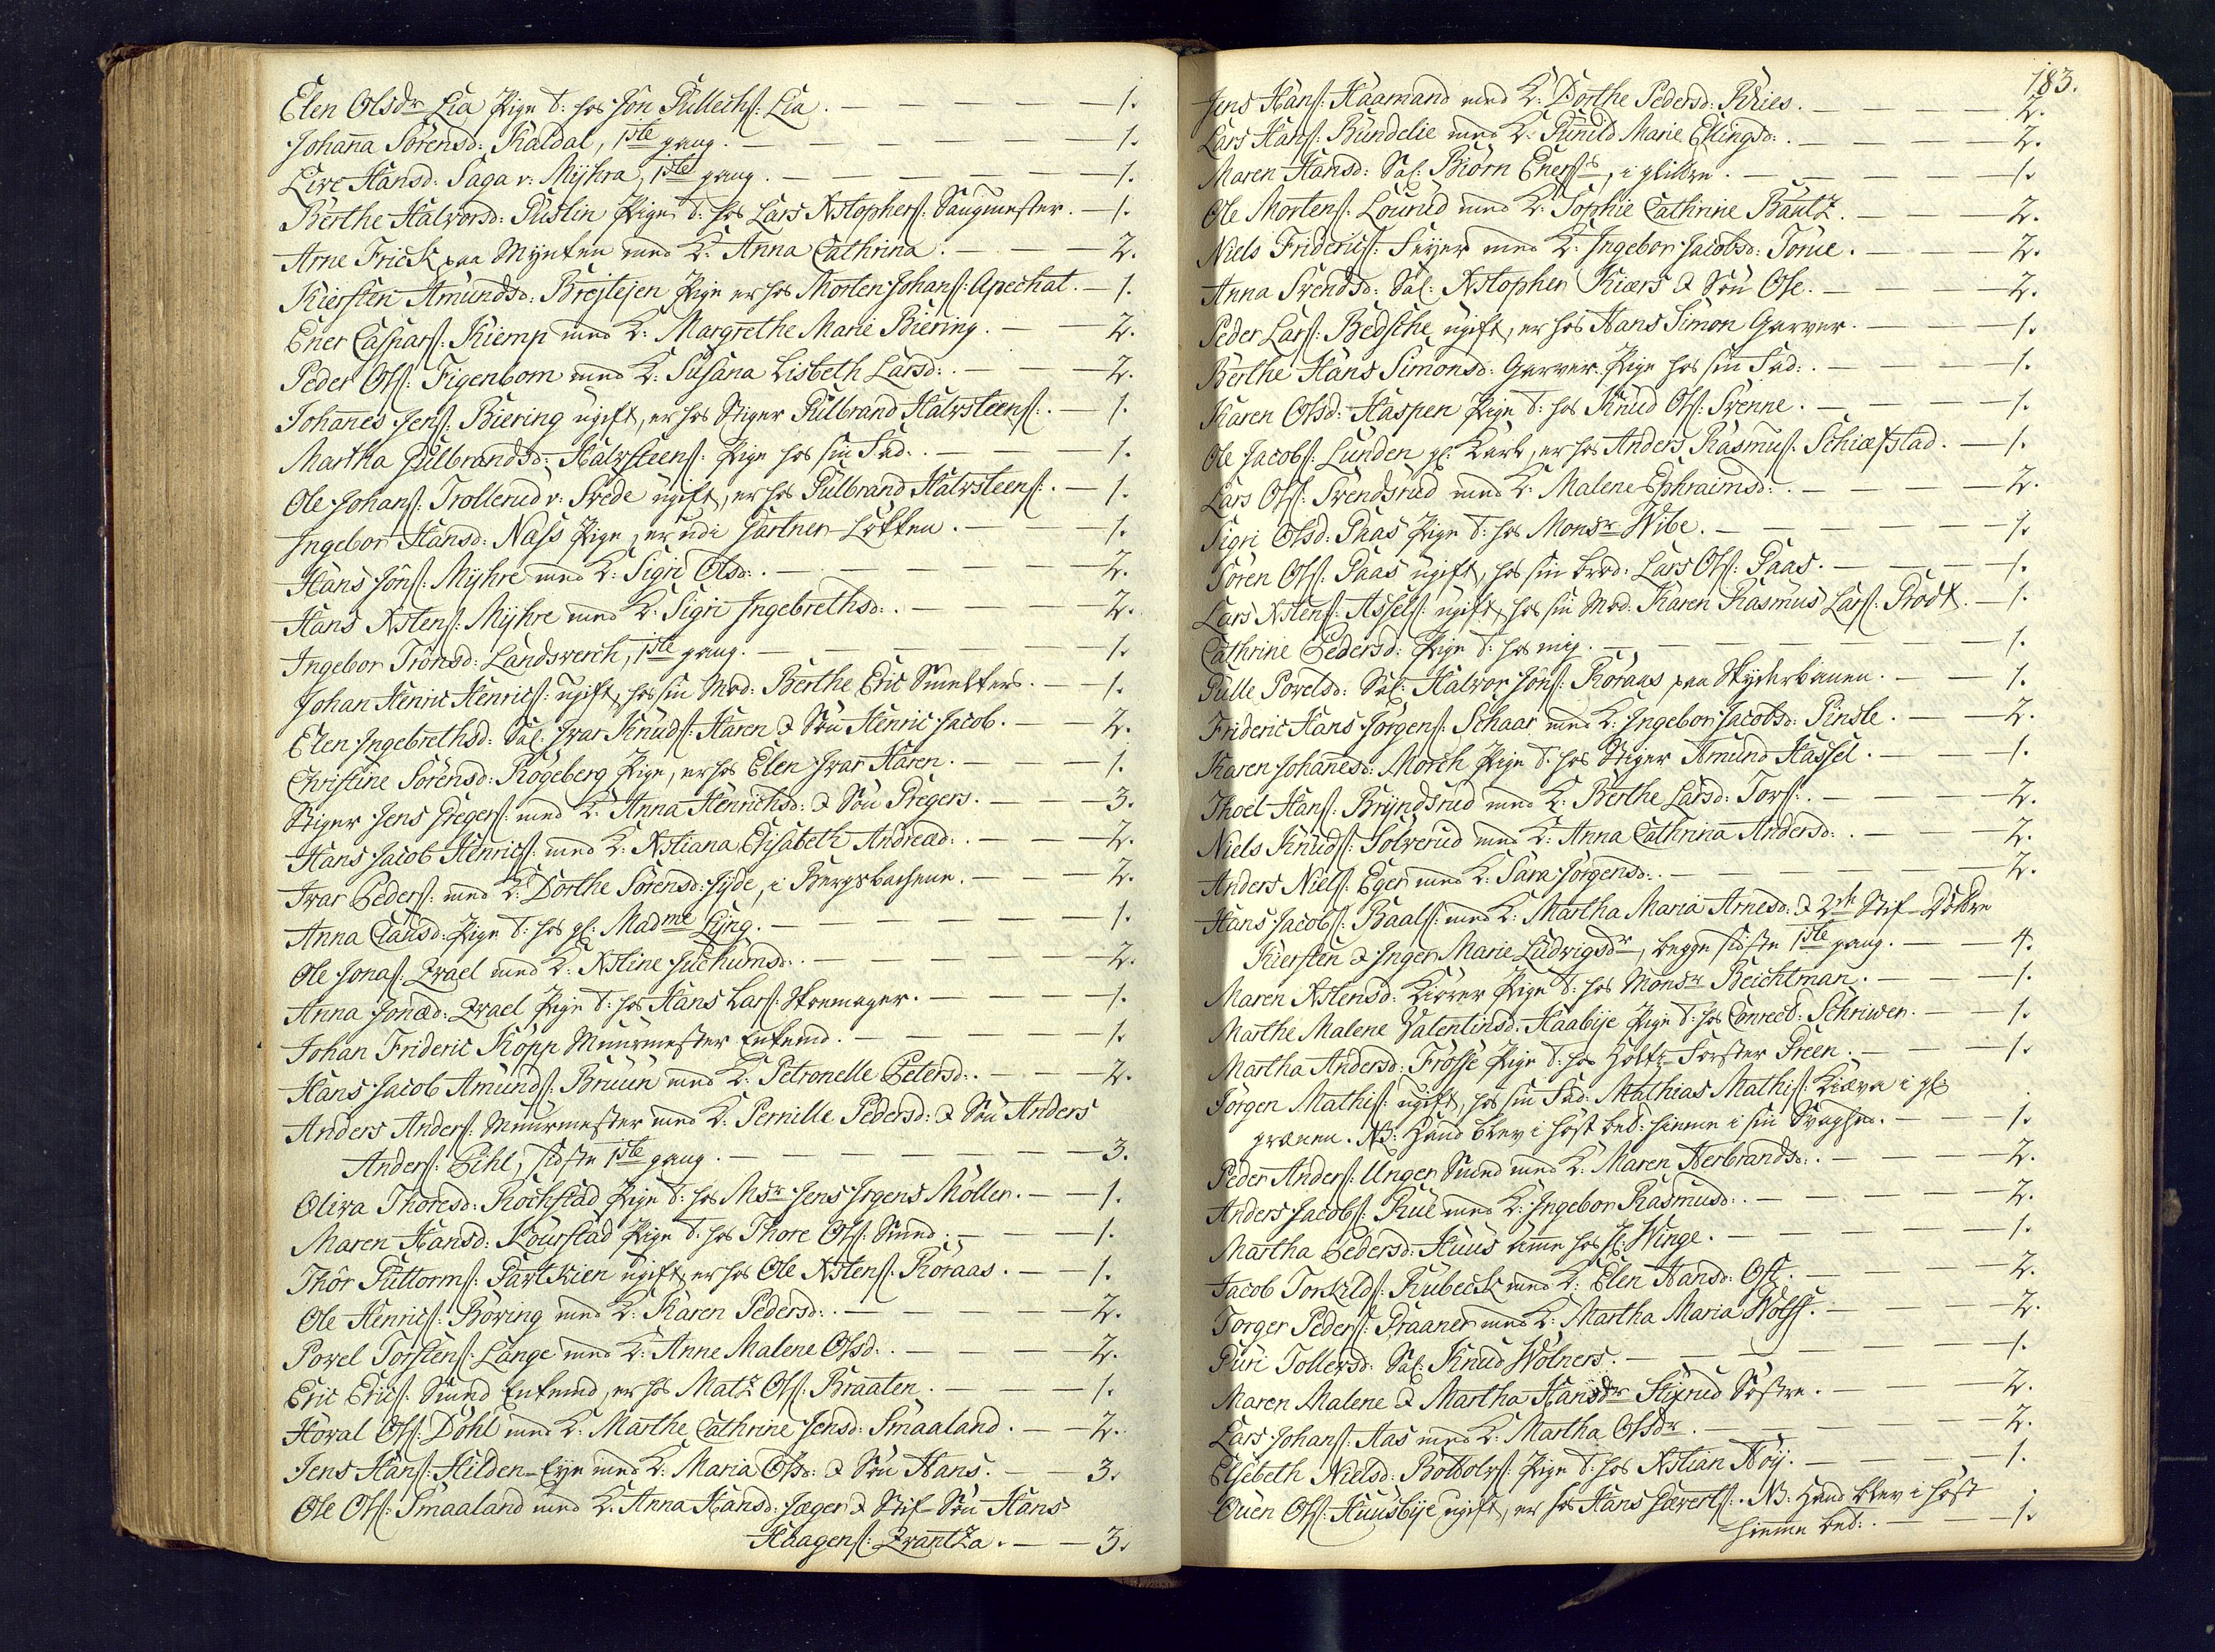 Elen Olsdr Lia Pige t: hos Jon Gullechs: Lia. — 1.
Johana Sörensd: Kaldal, 1ste gang. — 1.
Live Hansd: Saga v: Myhra, 1ste gang. — 1.
Berthe Halvorsd: Guslin Pige t: hos Lars Xstophers: Saugmester. — 1.
Arne Frick paa Mynten med K: Anna Cathrina. — 2.
Kiersten Amundsd: Brejtejen Pige er hos Morten Johans: Apechat. — 1.
Ener Caspars: Kiemp med K: Margrethe Marie Biering. — 2.
Peder Ols: Figenbom med K: Susana Lisbeth Larsd: — 2.
Johanes Jens: Biering ugift, er hos Stiger Gulbrand Halvsteens: — 1.
Martha Gulbrandsd: Halvsteens: Pige hos sin Fad: — 1.
Ole Johans: Trollerud v: Svede ugift, er hos Gulbrand Halvsteens: — 1.
Ingebor Hansd: Nass Pige, er udi Gartner Løkken. — 1.
Hans Jons: Myhre med K: Sigri Olsd: — 2.
Hans Xstens: Myhre med K: Sigri Ingebrethsd: — 2.
Ingebor Tronsd: Landsverch, 1ste gang. — 1.
Johan Henric Henrics: ugift, hos sin Mod: Berthe Eric Smelters. — 1.
Elen Ingebrethsd: Sal: Ivar Knuds: Haren & Søn Henric Jacob. — 2.
Christine Sörensd: Rogeberg Pige, er hos Elen Ivar Haren. — 1.
Stiger Jens Gregers: med K: Anna Henrichsd: & Søn Gregers. — 3.
Hans Jacob Henrics: med K: Xstiana Elisabeth Andread: — 2.
Ivar Peders: med K: Dorthe Sörensd: Jyde, i Bergsbachene. — 2.
Anna Clausd: Pige t: hos gl: Madme Lyng. — 1.
Ole Jonas: Zrael med K: Xstine Juchumsd: — 2.
Anna Jonæd: Zrael Pige t: hos Hans Lars: Skoemager. — 1.
Johan Frideric Kopp Muurmester Enkemd. — 1.
Hans Jacob Amunds: Bruun med K: Petronelle Petersd: — 2.
Anders Anders: Muurmester med K: Pernille Pedersd: & Søn Anders
Anders: Pihl, sidste 1ste gang. — 3.
Oliva Thoresd: Rochstad Pige t: hos Msr Jens Jrgens Möller. — 1.
Maren Hansd: Kourstad Pige t: hos Thore Ols: Smed. — 1.
Thor Guttorms: Partkien ugift, er hos Ole Xstens: Roraas. — 1.
Ole Henrics: Böving med K: Karen Pedersd: — 2.
Povel Torstens: Lange med K: Anne Malene Olsd: — 2.
Eric Erics: Smed Enkemd, er hos Matz Ols: Braaten. — 1.
Hoval Ols: Dohl med K: Marthe Cathrine Jensd: Smaaland. — 2.
Jens Hans: Hilden-Eye med K: Maria Olsd: & Søn Hans. — 3.
Ole Ols: Smaaland med K: Anna Hansd: Jæger & Stif-Søn Hans
Haagens: Zrantza. — 3.
183.
Jens Hans: Haamand med K: Dorthe Pedersd: Kries. — 2.
Lars Hans: Bundelie med K: Gunild Marie Ellingsd: — 2.
Maren Hansd: Sal: Biörn Eners, i — 1.
Ole Mortens: Lourud med K: Sophie Cathrine Bantz. — 2.
Niels Frideric: Seyer med K: Ingebor Jacobsd: Torue. — 2.
Anna Svendsd: Sal: Xstopher Kiærs & Søn Ole. — 2.
Peder Lars: Bedsche ugift, er hos Hans Simon Garver. — 1.
Berthe Hans Simonsd: Garver Pige hos sin Fad: — 1.
Karen Olsd: Haspen Pige t: hos Knud Ols: Svenne. — 1.
Ole Jacobs: Lunden gl: Karl, er hos Anders Rasmus: Schiæfstad. — 1.
Lars Ols: Svendsrud med K: Malene Ephraimsd: — 2.
Sigri Olsd: Gaas Pige t: hos Monsr Wibe. — 1.
Sören Ols: Gaas ugift, hos sin brod: Lars Ols: Gaas. — 1.
Lars Xstens: Assels: ugift, hos sin Mod: Karen Rasmus Lars: Brodt. — 1.
Cathrine Pedersd: Pige t: hos mig. — 1.
Gulle Povelsd: Sal: Halvor Jons: Roraas paa Skyderbanen. — 1.
Frideric Hans Jörgens: Schaar med K: Ingebor Jacobsd: Pinsle. — 2.
Karen Johanesd: Morch Pige t: hos Stiger Amund Hassel. — 1.
Thoel Hans: Bryndsrud med K: Berthe Larsd: Tors: — 2.
Niels Knuds: Solverud med K: Anna Cathrina Andersd: — 2.
Anders Niels: Eger med K: Sara Jörgensd: — 2.
Hans Jacobs: Baals: med K: Martha Maria Arnesd: & 2de Stif-Døttre
Kiersten & Inger Marie Ludvigsdr, begge sidste 1ste gang. — 4.
Maren Xstensd: Kiörer Pige t: hos Monsr Beichtman. — 1.
Marthe Malene Valentinsd: Haabye Pige t: hos Conrect: Schriwer. — 1.
Martha Andersd: Frosse Pige t: hos Holtz-Forster Green. — 1.
Jörgen Mathis: ugift, hos sin Fad: Mathias Mathis: Kiæva i gl:
graven. NB: Hand blev i høst bet: hieme i sin Svaghed. — 1.
Peder Anders: Unger Smed med K: Maren Herbrandsd: — 2.
Anders Jacobs: Rue med K: Ingebor Rasmusd: — 2.
Martha Pedersd: Huus Amme hos Hr: Winge. — 1.
Jacob Torkilds: Rubeck med K: Elen Hansd: Oft. — 2.
Torger Peders: Praaner med K: Martha Maria Wolff. — 2.
Guri Tollefsd: Sal: Knud Wolners. — 1.
Maren Malene & Martha Hansdr Styrud Søstre. — 2.
Lars Johans: Aas med K: Martha Olsdr. — 2.
Elsebeth Nielsd: Bottolvs: Pige t: hos Xstian Höy. — 1.
Ouen Ols: Huusbye ugift, er hos Hans Siverts: NB: Hand blev i høst
hieme bet: — 1.